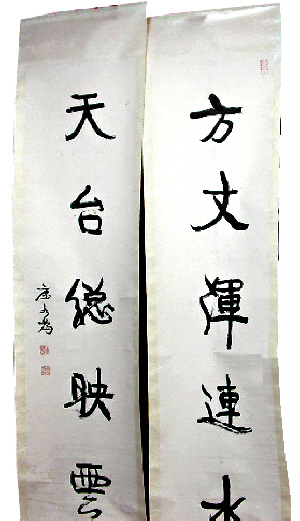 方丈渾連水
天台總映雲
康有為